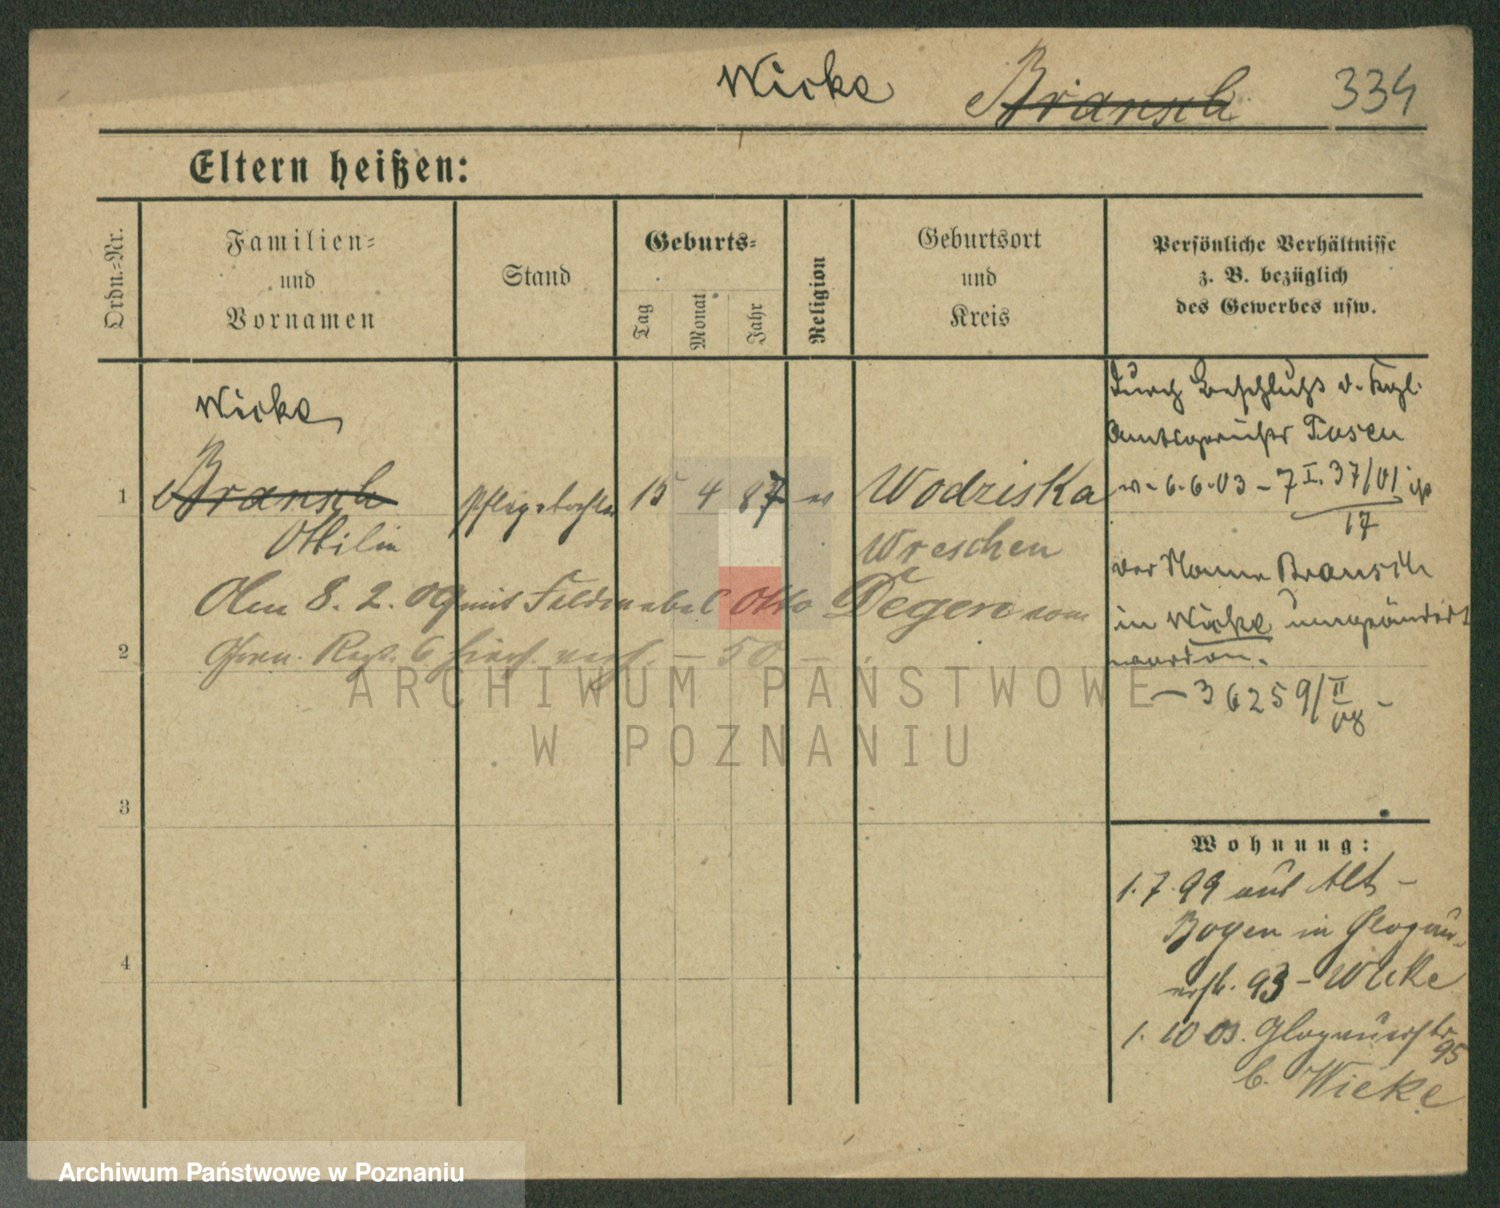 Wicke Bransch 334
Eltern heißen:
Ordn.-Nr.
Familien-
und
Vornamen
Stand
Geburts-
Tag
Monat
Jahr
Religion
Geburtsort
und
Kreis
Persönliche Verhältnisse
z. B. bezüglich
des Gewerbes usw.
Wicke
1 Bransch Pflegetochter 15 4 87 ev Wodziska
Ottilie Wreschen
Am 8. 2. 09 mit Feldwebel Otto Degen vom
2 Gren. Regt. 6 hier verh. – 50 –
3
4
Durch Beschluß d. Kgl.
Amtsgerichts Posen
v. 6.6.03 – 7 I. 37/01 ist
17
der Name Bransch
in Wicke umgeändert
worden.
– 36259/II
08 –
Wohnung:
1.7.99 aus Alt-
Bogen in Glogau-
erstr. 93 – Wicke
1. 10 03. Glogauerstr
95
b. Wicke
ARCHIWUM PAŃSTWOWE
W POZNANIU
Archiwum Państwowe w Poznaniu